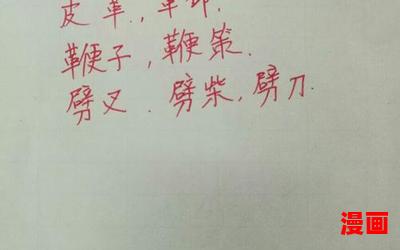 皮革,革命.
鞭子,鞭策.
劈叉.劈柴,劈刀.
漫画